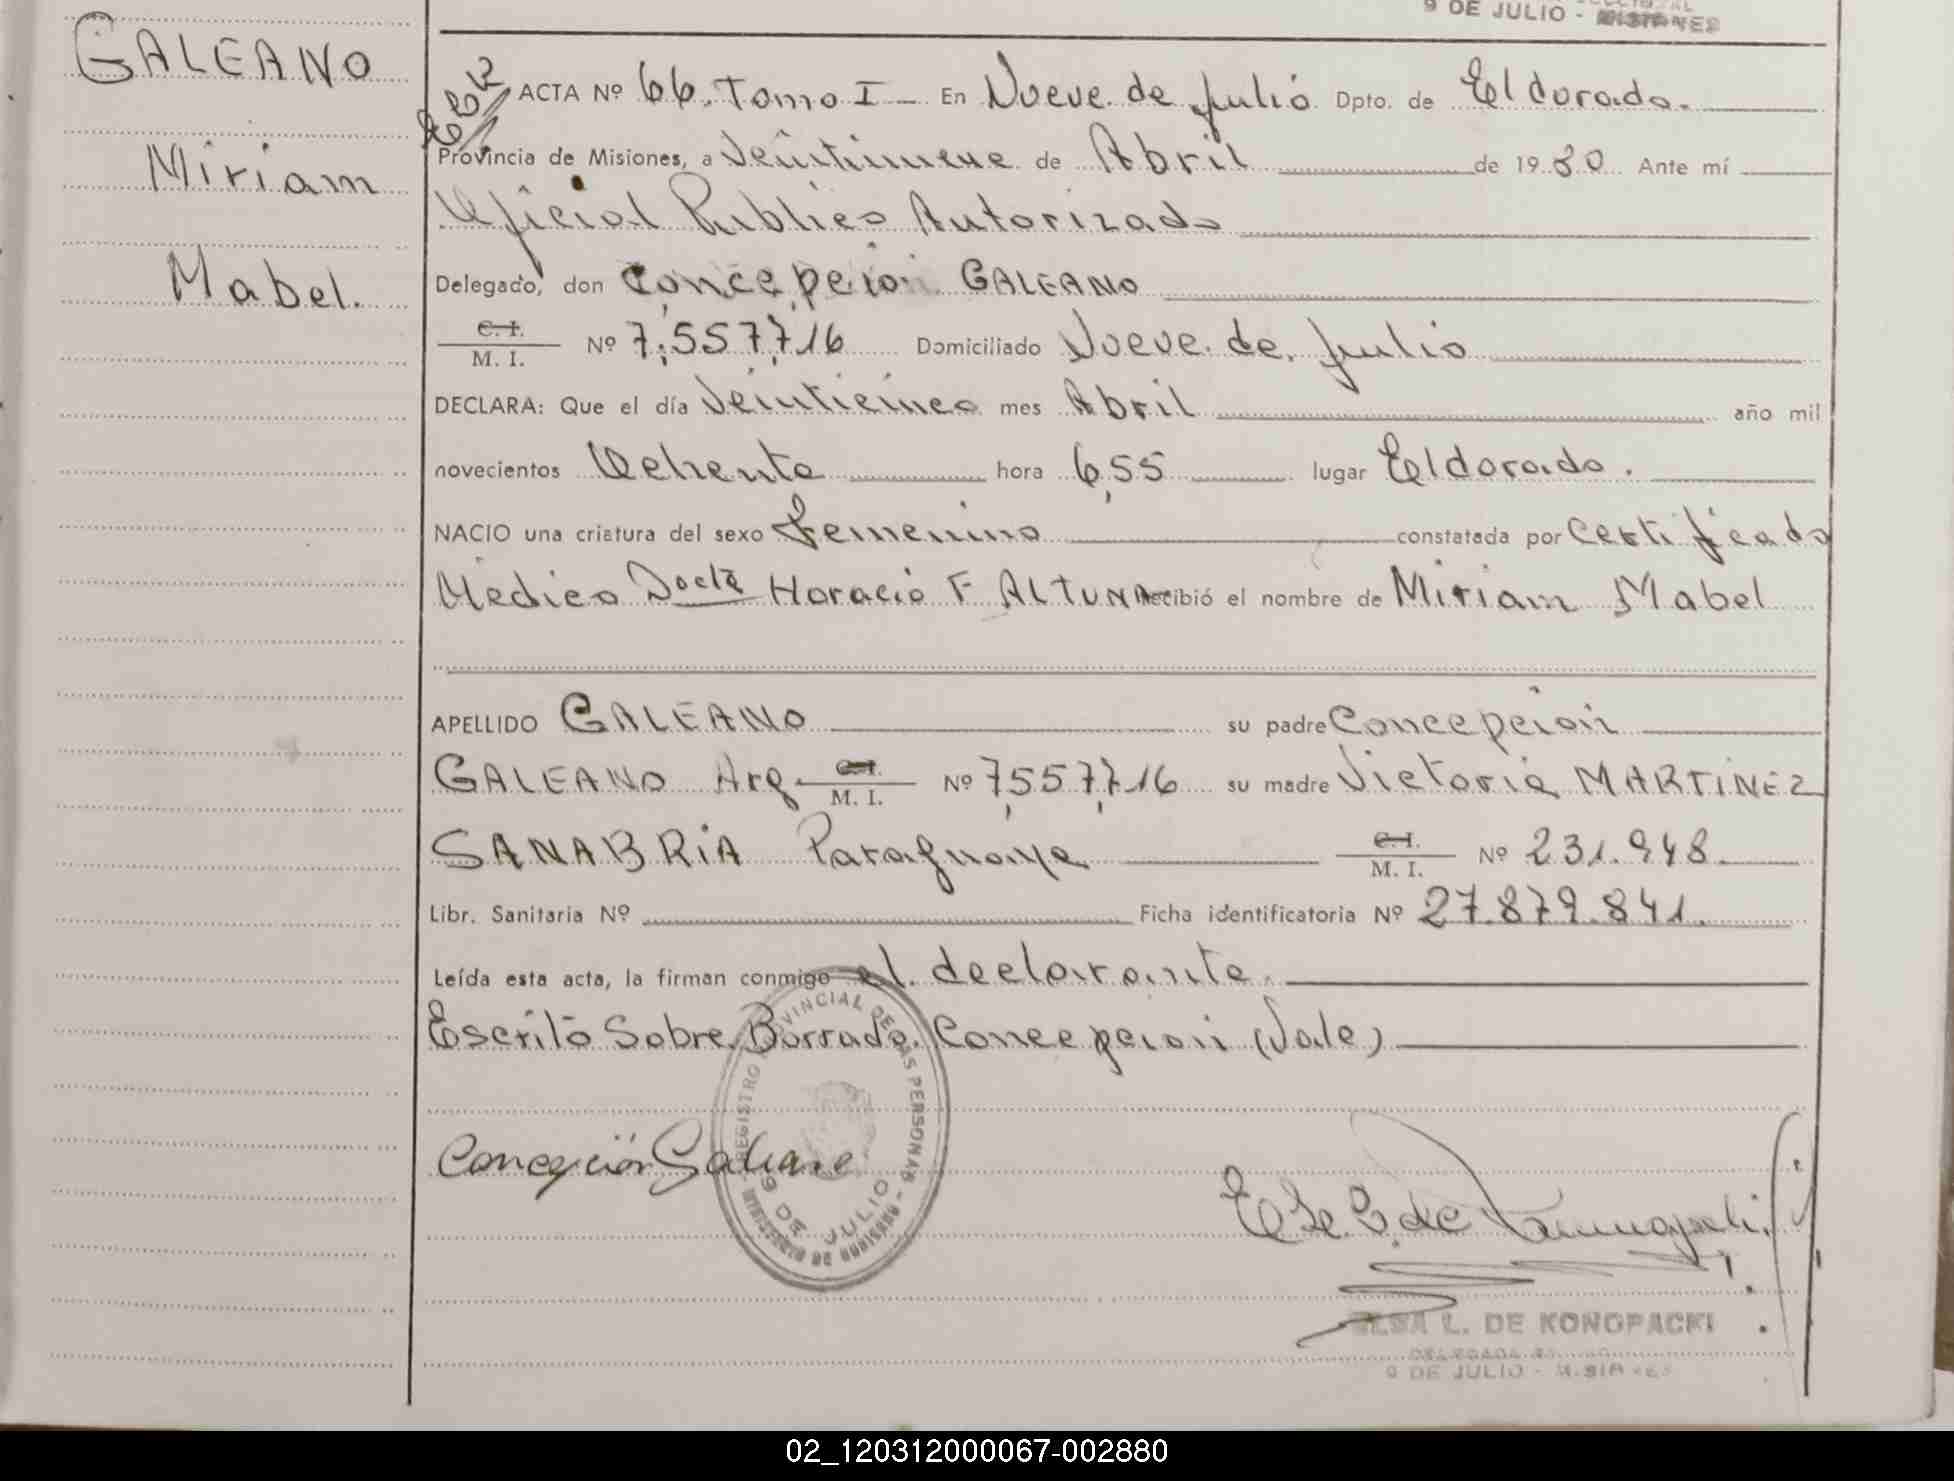 9 DE JULIO - MISIONES
GALEANO
Miriam
Mabel.
ACTA Nº 66. Tomo I En Nueve de Julio Dpto. de Eldorado.
Provincia de Misiones, a Veintinueve de Abril de 1980 Ante mí
Oficial Publico Autorizado
Delegado, don Concepcion GALEANO
C. I.
M. I. Nº 7,557,716 Domiciliado Nueve de Julio
DECLARA: Que el día Veinticinco mes Abril año mil
novecientos Ochenta hora 6,55 lugar Eldorado.
NACIO una criatura del sexo femenino constatada por Certificado
Medico Doctr Horacio F ALTUNA recibió el nombre de Miriam Mabel
APELLIDO GALEANO su padre Concepcion
GALEANO Arg. C. I.
M. I. Nº 7,557,716 su madre Victoria MARTINEZ
SANABRIA Paraguaya C. I.
M. I. Nº 231.948.
Libr. Sanitaria Nº Ficha identificatoria Nº 27.879.841.
Leída esta acta, la firman conmigo el declarante.
Escrito Sobre Borrado. Concepcion (Vale)
REGISTRO PROVINCIAL DE LAS PERSONAS
9 DE JULIO
MINISTERIO DE GOBIERNO
Concepción Galeano
ELSA L. DE KONOPACKI
DELEGADA
9 DE JULIO - MISIONES
02_120312000067-002880